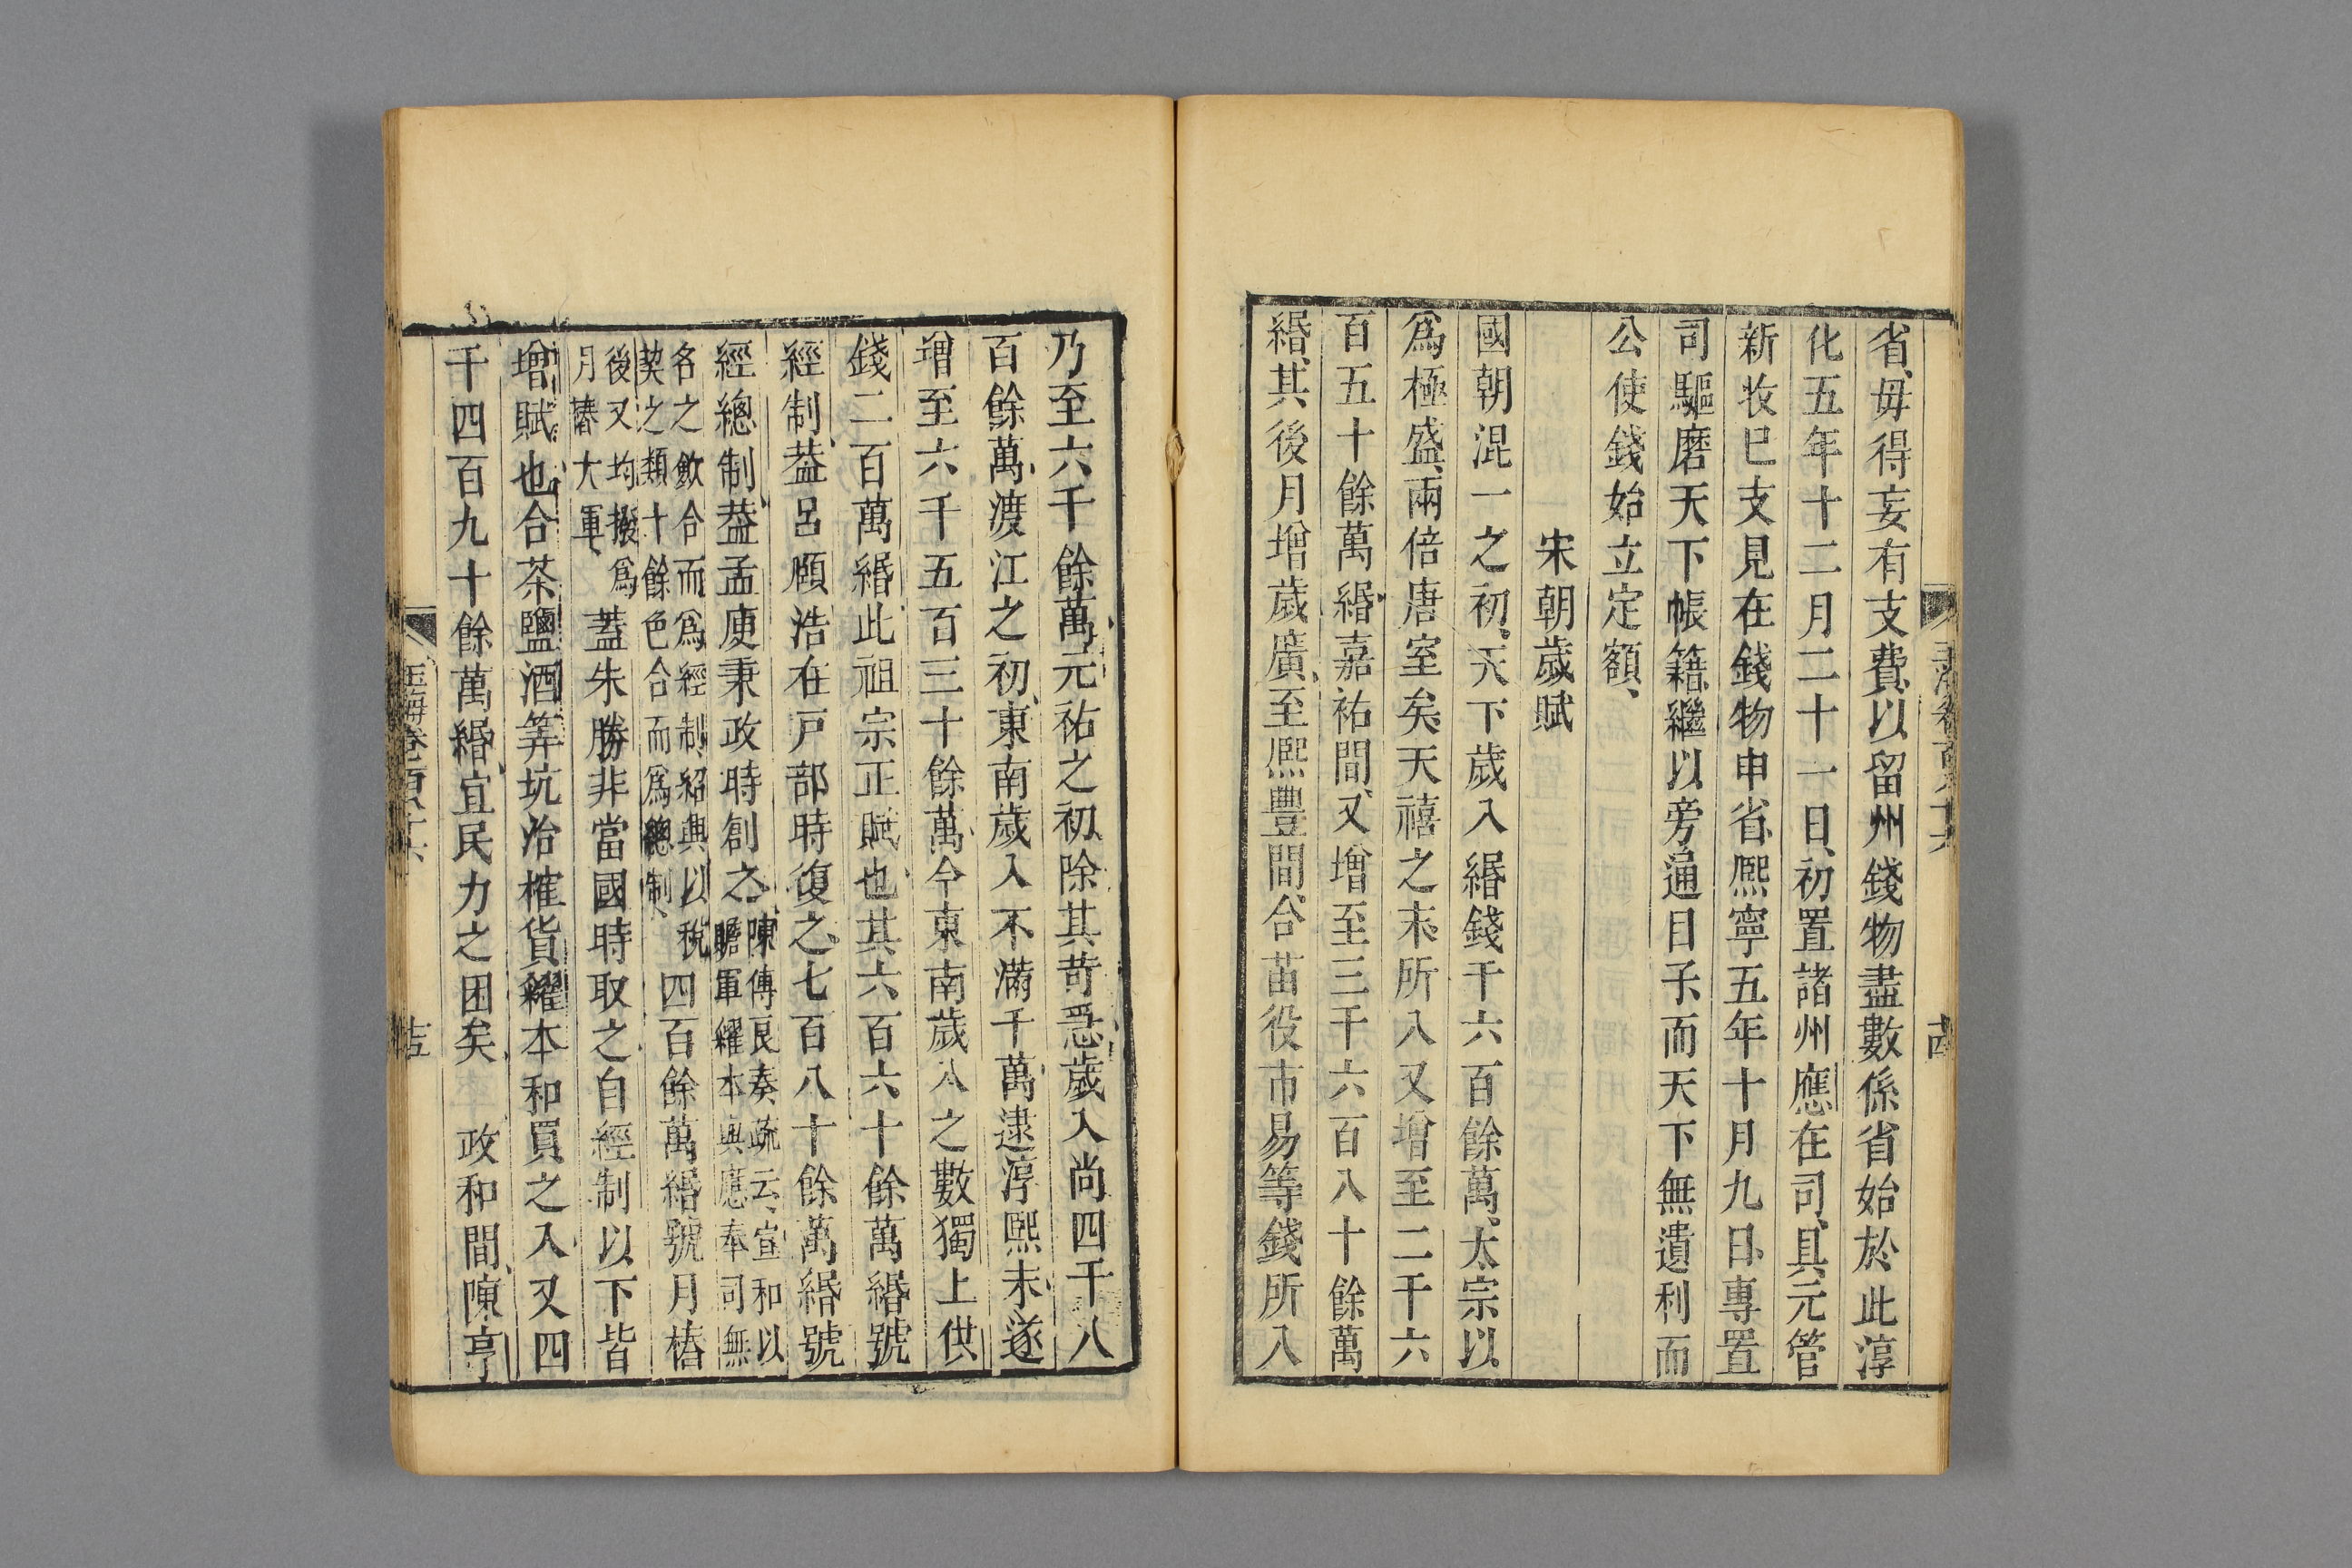 省毋得妄有支費以留州錢物盡數係省始於此淳
化五年十二月二十一日初置諸州應在司具元管
新收已支見在錢物申省熙寧五年十月九日專置
司驅磨天下帳籍繼以旁通目子而天下無遺利而
公使錢始立定額
宋朝歲賦
國朝混一之初天下歲入緡錢千六百餘萬太宗以
爲極盛兩倍唐室矣天禧之末所入又增至二千六
百五十餘萬緡嘉祐間又增至三千六百八十餘萬
緡其後月增歲廣至熙豐間合苗役市易等錢所入
乃至六千餘萬元祐之初除其苛悉歲入尚四千八
百餘萬渡江之初東南歲入不滿千萬逮淳熙末遂
增至六千五百三十餘萬今東南歲入之數獨上供
錢二百萬緡此祖宗正賦也其六百六十餘萬緡號
經制葢呂頤浩在戸部時復之七百八十餘萬緡號
經總制葢孟庾秉政時創之陳傅良奏疏云宣和以
贍軍糴本與應奉司無
名之斂合而爲經制紹興以稅
契之類十餘色合而爲總制四百餘萬緡號月樁
後又均撥爲
月樁大軍蓋朱勝非當國時取之自經制以下皆
增賦也合茶鹽酒筭坑冶榷貨糴本和買之入又四
千四百九十餘萬緡宜民力之困矣 政和間陳亨
玉海卷百八十六